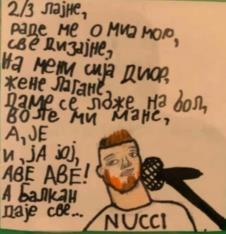 2/3 лајне,
раде ме о Миа мою,
све дизајне,
На мени сија Диор,
жене лагане,
Даме се ложе на бол,
воле ми мане,
А, ЈЕ
И, ЈА ЈОЈ,
АВЕ АВЕ!
А БАЛКАН
Даје све...
NUCCI